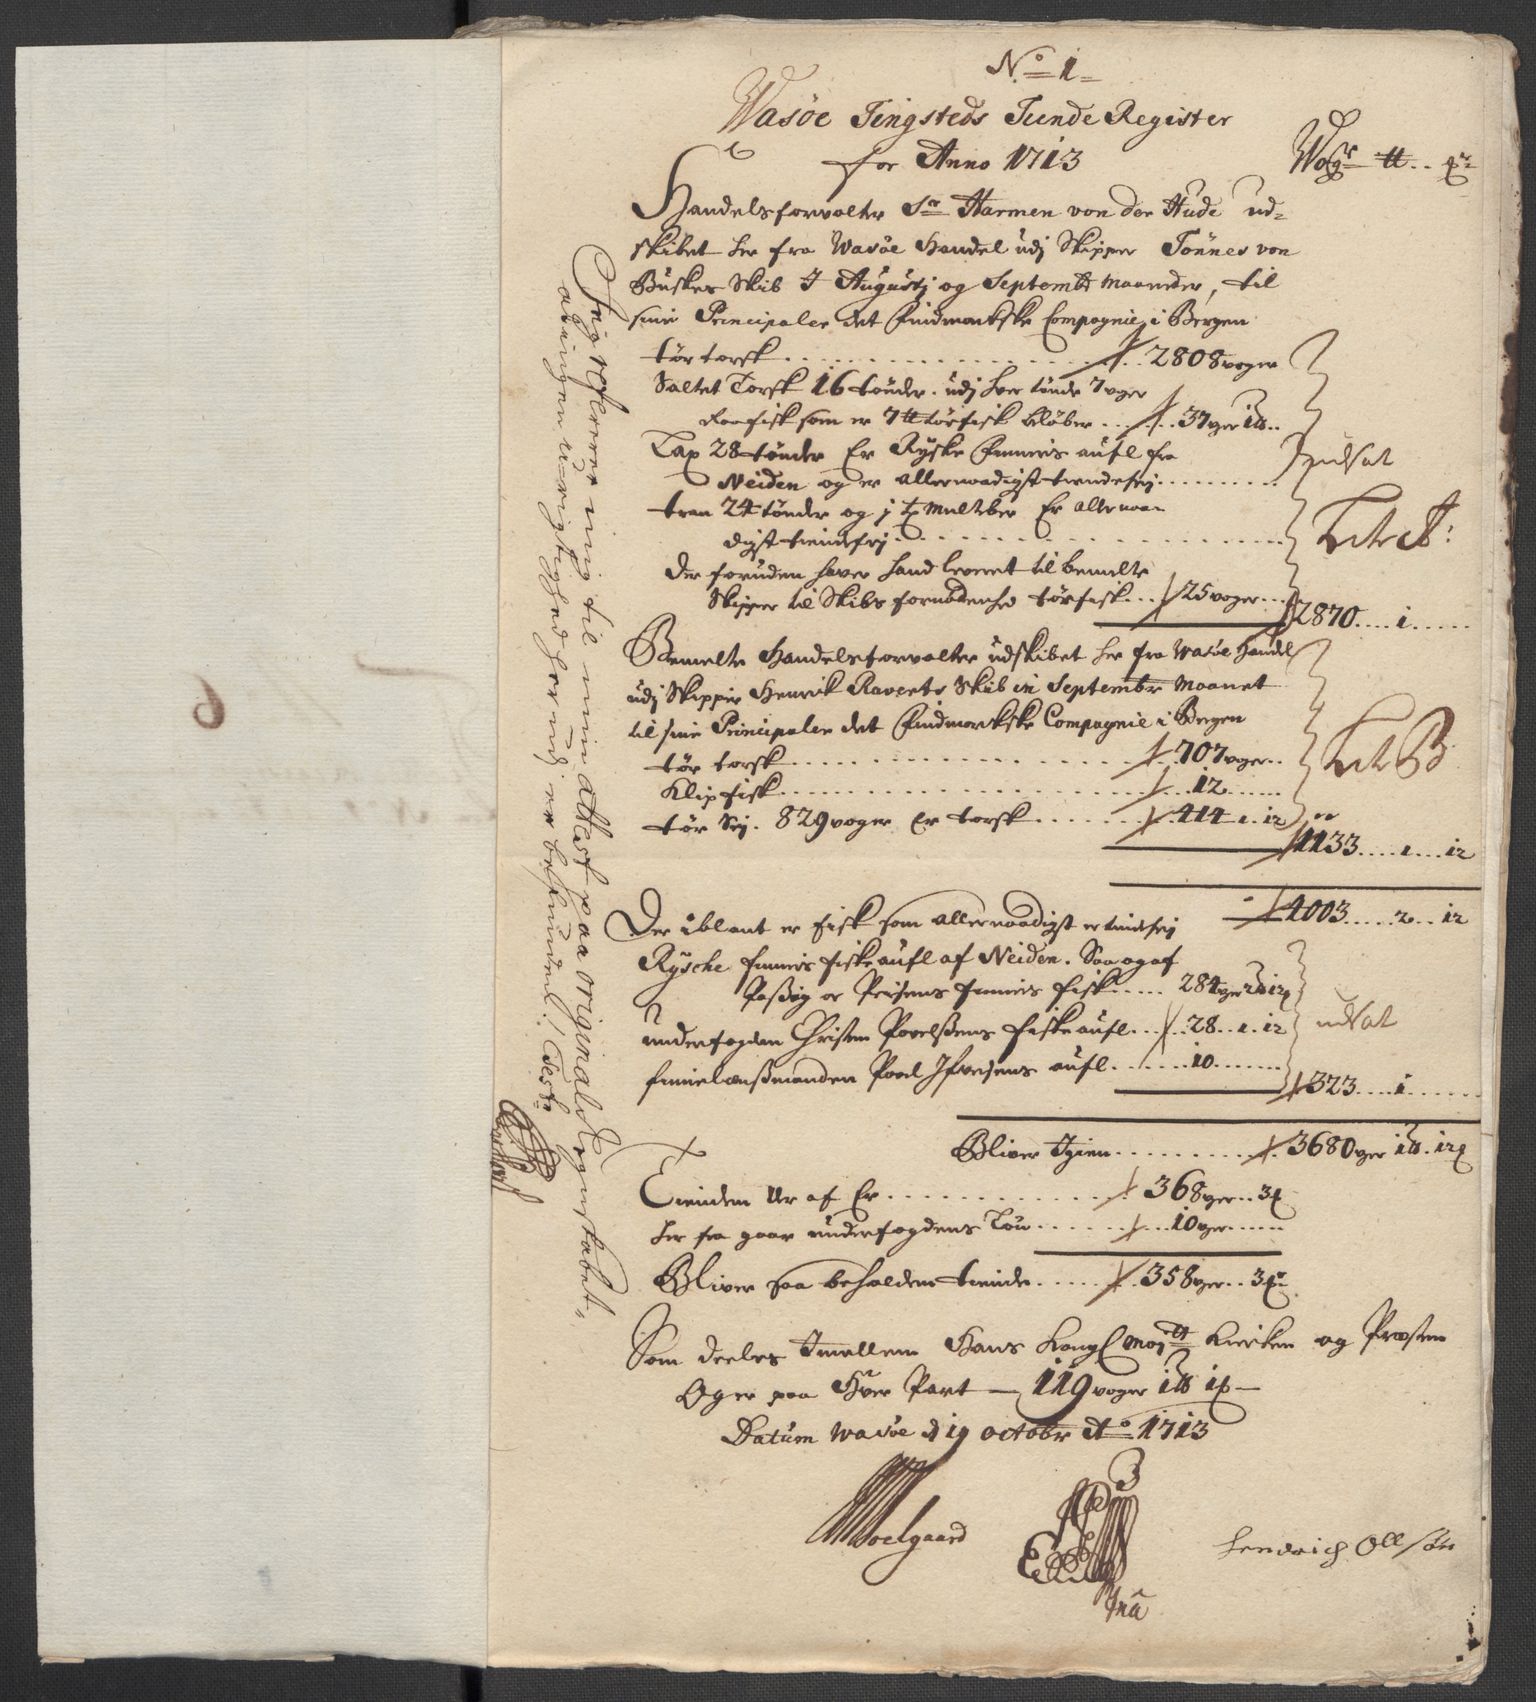 No 1
Wasöe Tingsteds Tiende Register
for Anno 1713
Woger ℔ ..
Handelsforvalter Sr Harmen von der Hude ud-
skibet her fra Wasöe Handel udj Skipper Tönnes von
Büskes Skib J Augustj og Septembr Maaneder, til
sine Principaler det Findmarkske Compagnie i Bergen
tör torsk . . . 2808 voger
Saltet Torsk 16 tönder. udj hver tönde 7 voger
Raafisk som er 7 ℔ törfisk belöber . . . 37 voger 1 ℔ ..
Lax 28 tönder Er Ryske Finnernis aufl fra
Neiden og er allernaadigst tiendefrj . . .
udsat
tran 24 tönder og j Multeber Er allernaa-
digst tiendefrj . . .
Litr A:
Der foruden haver hand leveret til bemelte
Skipper til Skibs fornödenhed törfisk . . . 25 voger . . .
2870 .... 1 ......
Bemelte Handelsforvalter udskibet her fra Wasöe Handel
udj Skipper Henrik Raverts Skib in Septembr Maanet
til sine Principaler det Findmarkske Compagnie i Bergen
tör torsk . . . 707 voger ..
Litr B
Klip fisk . . . 12 ......
tör Sej. 829 voger Er torsk . . . 414 .. 1 .. 12
1133 .... 1 .... 12
4003 .... 2 ... 12
Der iblant er fisk som allernaadigst er tiendefrj
Rysche finnernis fiske aufl af Neiden. Saa og af
Paßvig oc Peisens finners fisk ..... 284 voger 2 ℔ 12
underfogden Christen Povelßens fiske aufl .... 28 .. 1 .. 12
udsat
finnelænßmanden Povel Ifversens aufl ....... 10 .......
323 .... 1 ......
Bliver Igien . . . 3680 voger 1 ℔. 12
Tienden Ur af Er . . . 368 voger .. 3
her fra gaar underfogdens Lön . . . 10 voger ......
Bliver saa beholden tiende . . . 358 voger .. 3
Som deeles Imellem Hans Kongl Maytt Kircken og Præsten
Og er paa Hver Part — 119 voger 1 ℔ 1 —
Datum Wasöe d 19 octobr Ao 1713
Soelgaard
Hendrich Ollsön
Jeg refererer mig til min attest paa originale Registret,
at ingen u-rigtighed hermedj er befunden! Testr